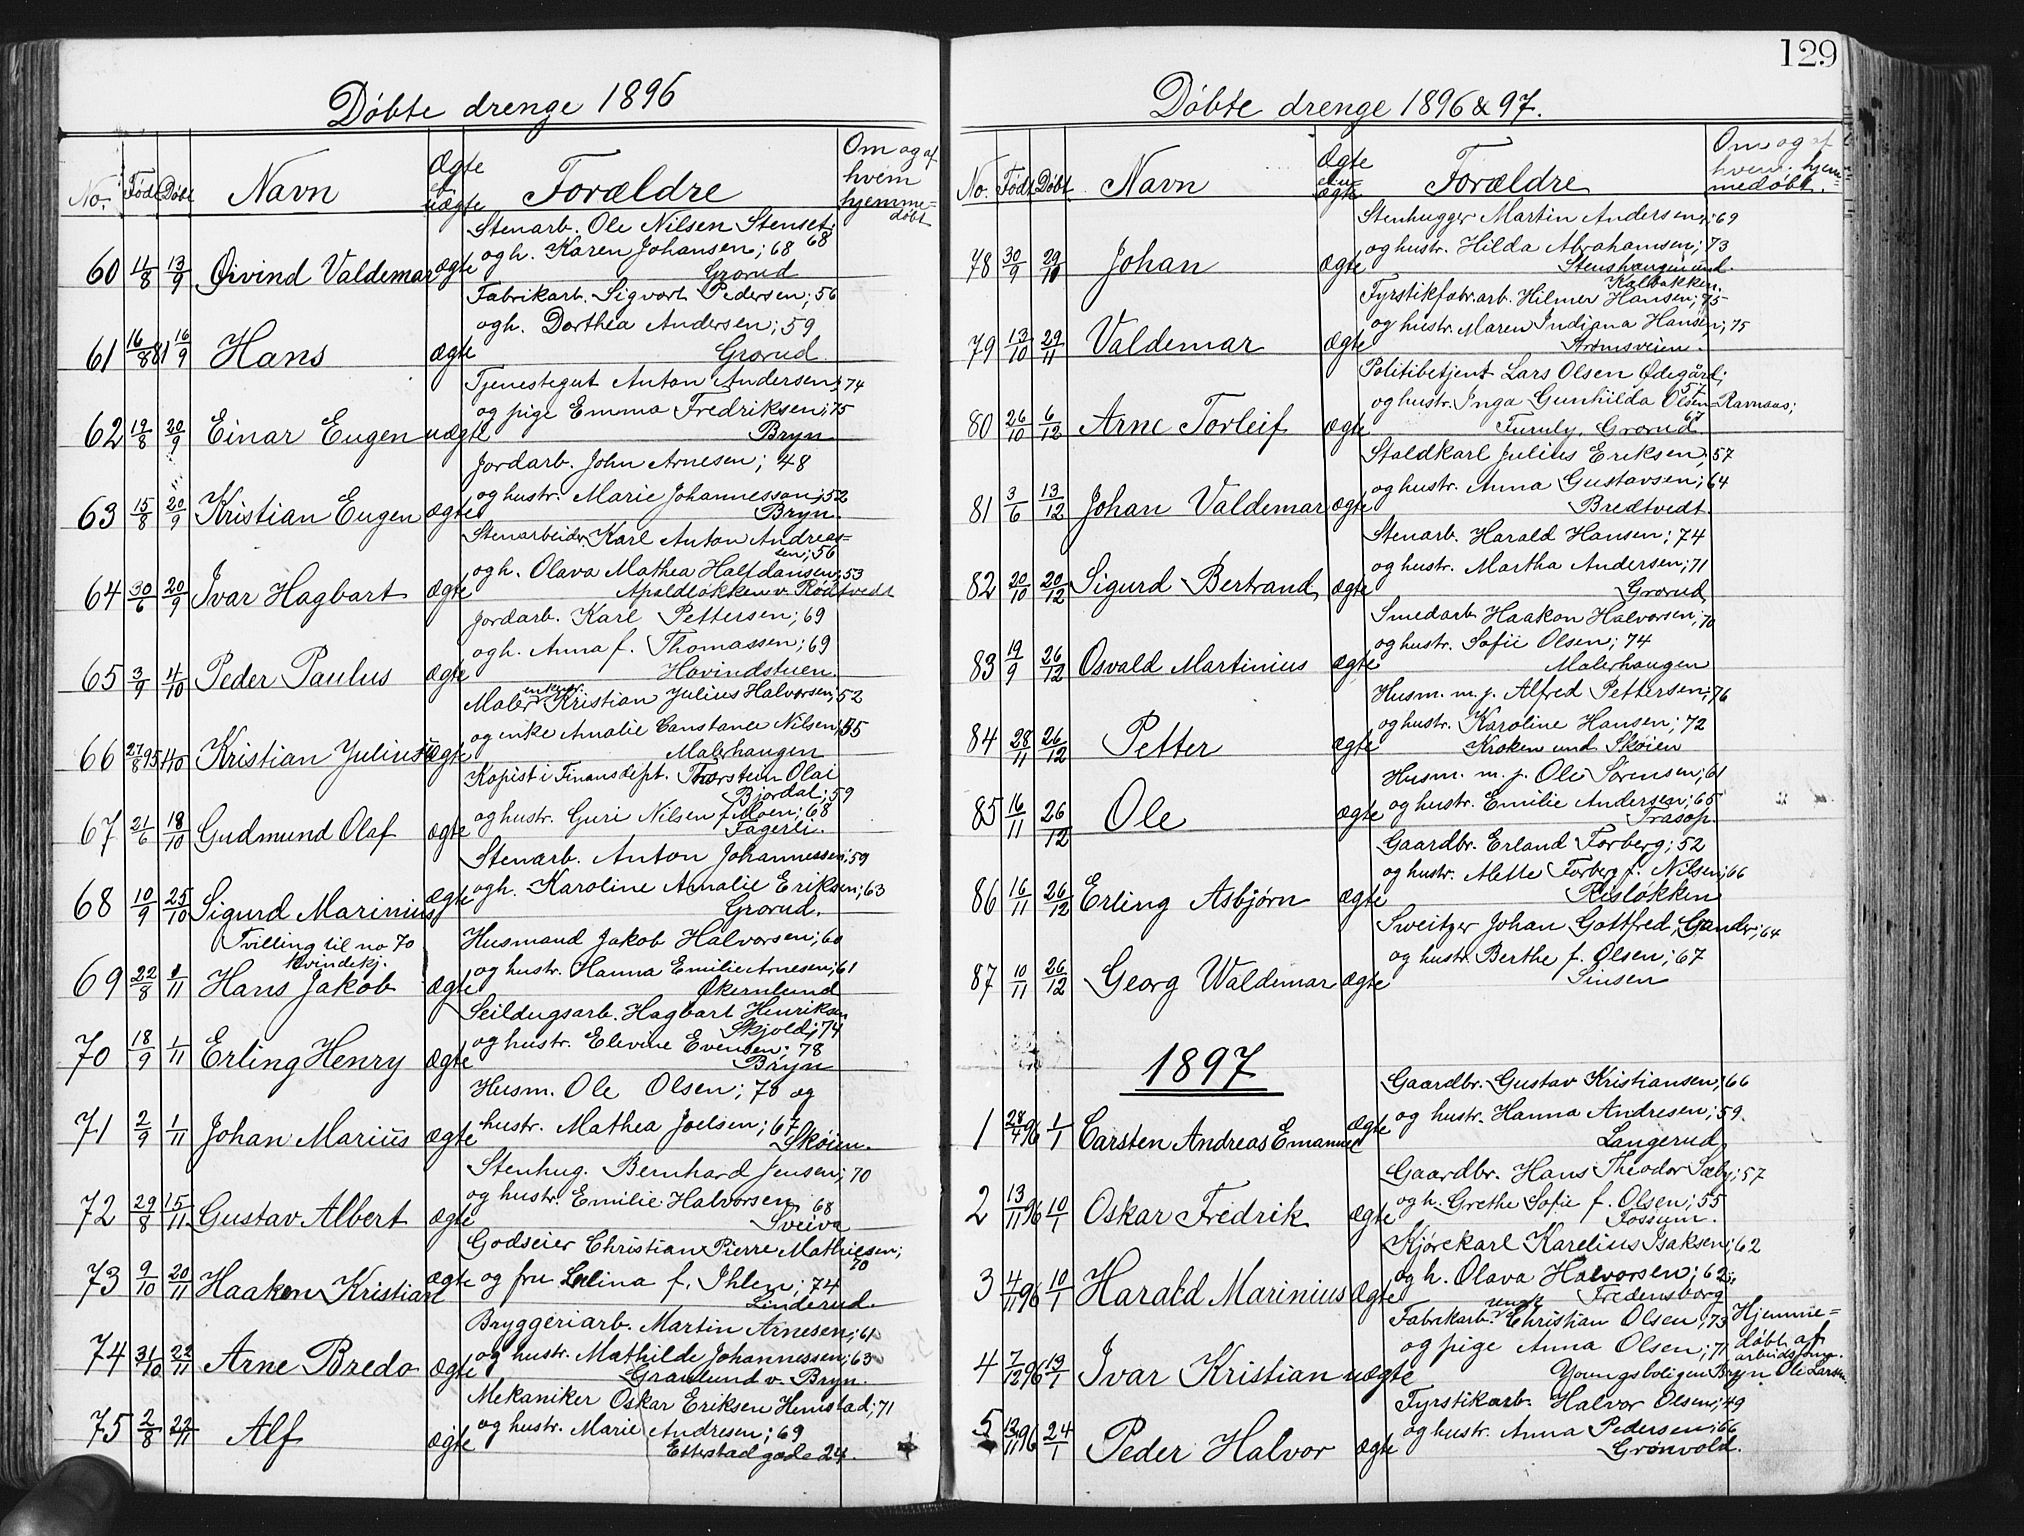 Døbte drenge 1896
No. Født Døbt Navn Ægte el. uægte Forældre Om og af hvem hjemme=døbt
Stenarb. Ole Nilsen Stenset; 68
og h. Karen Johansen; 68
60 11/8 13/9 Øivind Valdemar ægte Grorud
Fabrikarb. Sigvart Pedersen; 56
og h. Dorthea Andersen; 59
61 16/8 81 16/9 Hans ægte Grorud
Tjenestegut Anton Andersen; 74
og pige Emma Fredriksen; 75
62 19/8 20/9 Einar Eugen uægte Bryn
Jordarb. John Arnesen; 48
og hustr. Marie Johannesson; 52
63 15/8 20/9 Kristian Eugen ægte Bryn.
Stenarbeider Karl Anton Andreas=
sen; 56
og h. Olava Mathea Halfdansen; 53
64 30/6 20/9 Ivar Hagbart ægte Apaldløkken v. Rödtvedt
Jordarb. Karl Pettersen; 69
og h. Anna f. Thomassen; 69
65 3/9 4/10 Peder Paulus ægte Hovindstuen.
Maler enkem. Kristian Julius Halvorsen; 52
og enke Amalie Constance Nilsen; 55
66 27/8 95 4/10 Kristian Julius uægte Malerhaugen
Kopist i Finansdept. Thorstein Olai
Bjordal; 59
og hustr. Guri Nilsen f. Moen; 68
67 21/6 18/10 Gudmund Olaf ægte Fagerli.
Stenarb. Anton Johannessen; 59
og h. Karoline Amalie Eriksen; 63
68 10/9 25/10 Sigurd Marinius ægte Grorud.
Tvilling til no 70
kvindekj.
Husmand Jakob Halvorsen; 60
og hustr. Hanna Emilie Arnesen; 61
69 22/8 1/11 Hans Jakob ægte Økernlund
Seildugsarb. Hagbart Henriksen
Skjold; 74
og hustr. Elevine Evensen; 78
70 18/9 1/11 Erling Henry ægte Bryn
Husm. Ole Olsen; 70 og
71 2/9 1/11 Johan Marius ægte hustr. Mathea Joelsen; 67
Skøien.
Stenhug. Bernhard Jensen; 70
og hustr. Emilie Halvorsen 68
72 29/8 15/11 Gustav Albert ægte Sveiva
Godseier Christian Pierre Mathiesen;
70
73 9/10 20/11 Haakon Kristian ægte og fru Lulina f. Ihlen; 74
Linderud.
Bryggeriarb. Martin Arnesen; 61
og hustr. Mathilde Johannessen; 63
74 31/10 22/11 Arne Bredo ægte Granlund v. Bryn.
Mekaniker Oskar Eriksen Hemstad; 71
og hustr. Marie Andresen; 69
75 2/8 22/11 Alf ægte Etterstadgade 24.
129
Døbte drenge 1896 & 97.
No. Født Døbt Navn Ægte el. u=ægte Forældre Om og af hvem hjem=medøbt.
Stenhugger Martin Andersen; 69
og hustr. Hilda Abrahamsen; 73
78 30/9 29/11 Johan ægte Stenshaugen und.
Kalbakken.
Fyrstikfabr.arb. Hilmer Hansen; 75
og hustr. Maren Indiana Hansen; 75
79 13/10 29/11 Valdemar ægte Strømsveien.
Politibetjent Lars Olsen Ødegård;
57
og hustr. Inga Gunhilda Olsen Ravnaas;
67
80 26/10 6/12 Arne Torleif ægte Furuly, Grorud.
Staldkarl Julius Eriksen; 57
og hustr. Anna Gustavsen; 64
81 3/6 13/12 Johan Valdemar ægte Bredtvedt.
Stenarb. Harald Hansen; 74
og hustr. Martha Andersen; 71
82 20/10 20/12 Sigurd Bertrand ægte Grorud
Smedarb. Haakon Halvorsen; 70
og hustr. Sofie Olsen; 74
83 19/9 26/12 Osvald Martinius ægte Malerhaugen
Husm. m. j. Alfred Pettersen; 76
og hustr. Karoline Hansen; 72
84 28/11 26/12 Petter ægte Kroken und Skøien
Husm. m. j. Ole Sørensen; 61
og hustr. Emilie Andersen; 65
85 16/11 26/12 Ole ægte Trasop.
Gaardbr. Erland Forberg; 52
og hustr. Alette Forberg f. Nilsen; 66
86 16/11 26/12 Erling Asbjørn ægte Risløkken
Sweitzer Johan Gottfred Gander; 64
og hustr. Berthe f. Olsen; 67
87 10/11 26/12 Georg Waldemar ægte Sinsen
1897
Gaardbr. Gustav Kristiansen; 66
og hustr. Hanna Andresen; 59.
1 28/4 96 1/1 Carsten Andreas Emanuel ægte Langerud
Gaardbr. Hans Theodor Sæby; 57
og h. Grethe Sofie f. Olsen; 55
2 13/11 96 10/1 Oskar Fredrik ægte Fossum.
Kjørekarl Karelius Isaksen; 62
og h. Olava Halvorsen; 62;
3 4/11 96 10/1 Harald Marinius ægte Fredensborg
Fabrikarb. ungk. Christian Olsen; 73 Hjemme=
og pige Anna Olsen; 71 døbt af
arbeidsfm.
4 7/12 96 13/1 Ivar Kristian uægte Youngsboligen Bryn Ole Larsen.
Fyrstikarb. Halvor Olsen; 49
og hustr. Anna Pedersen; 66
5 13/11 96 24/1 Peder Halvor ægte Grønvold.